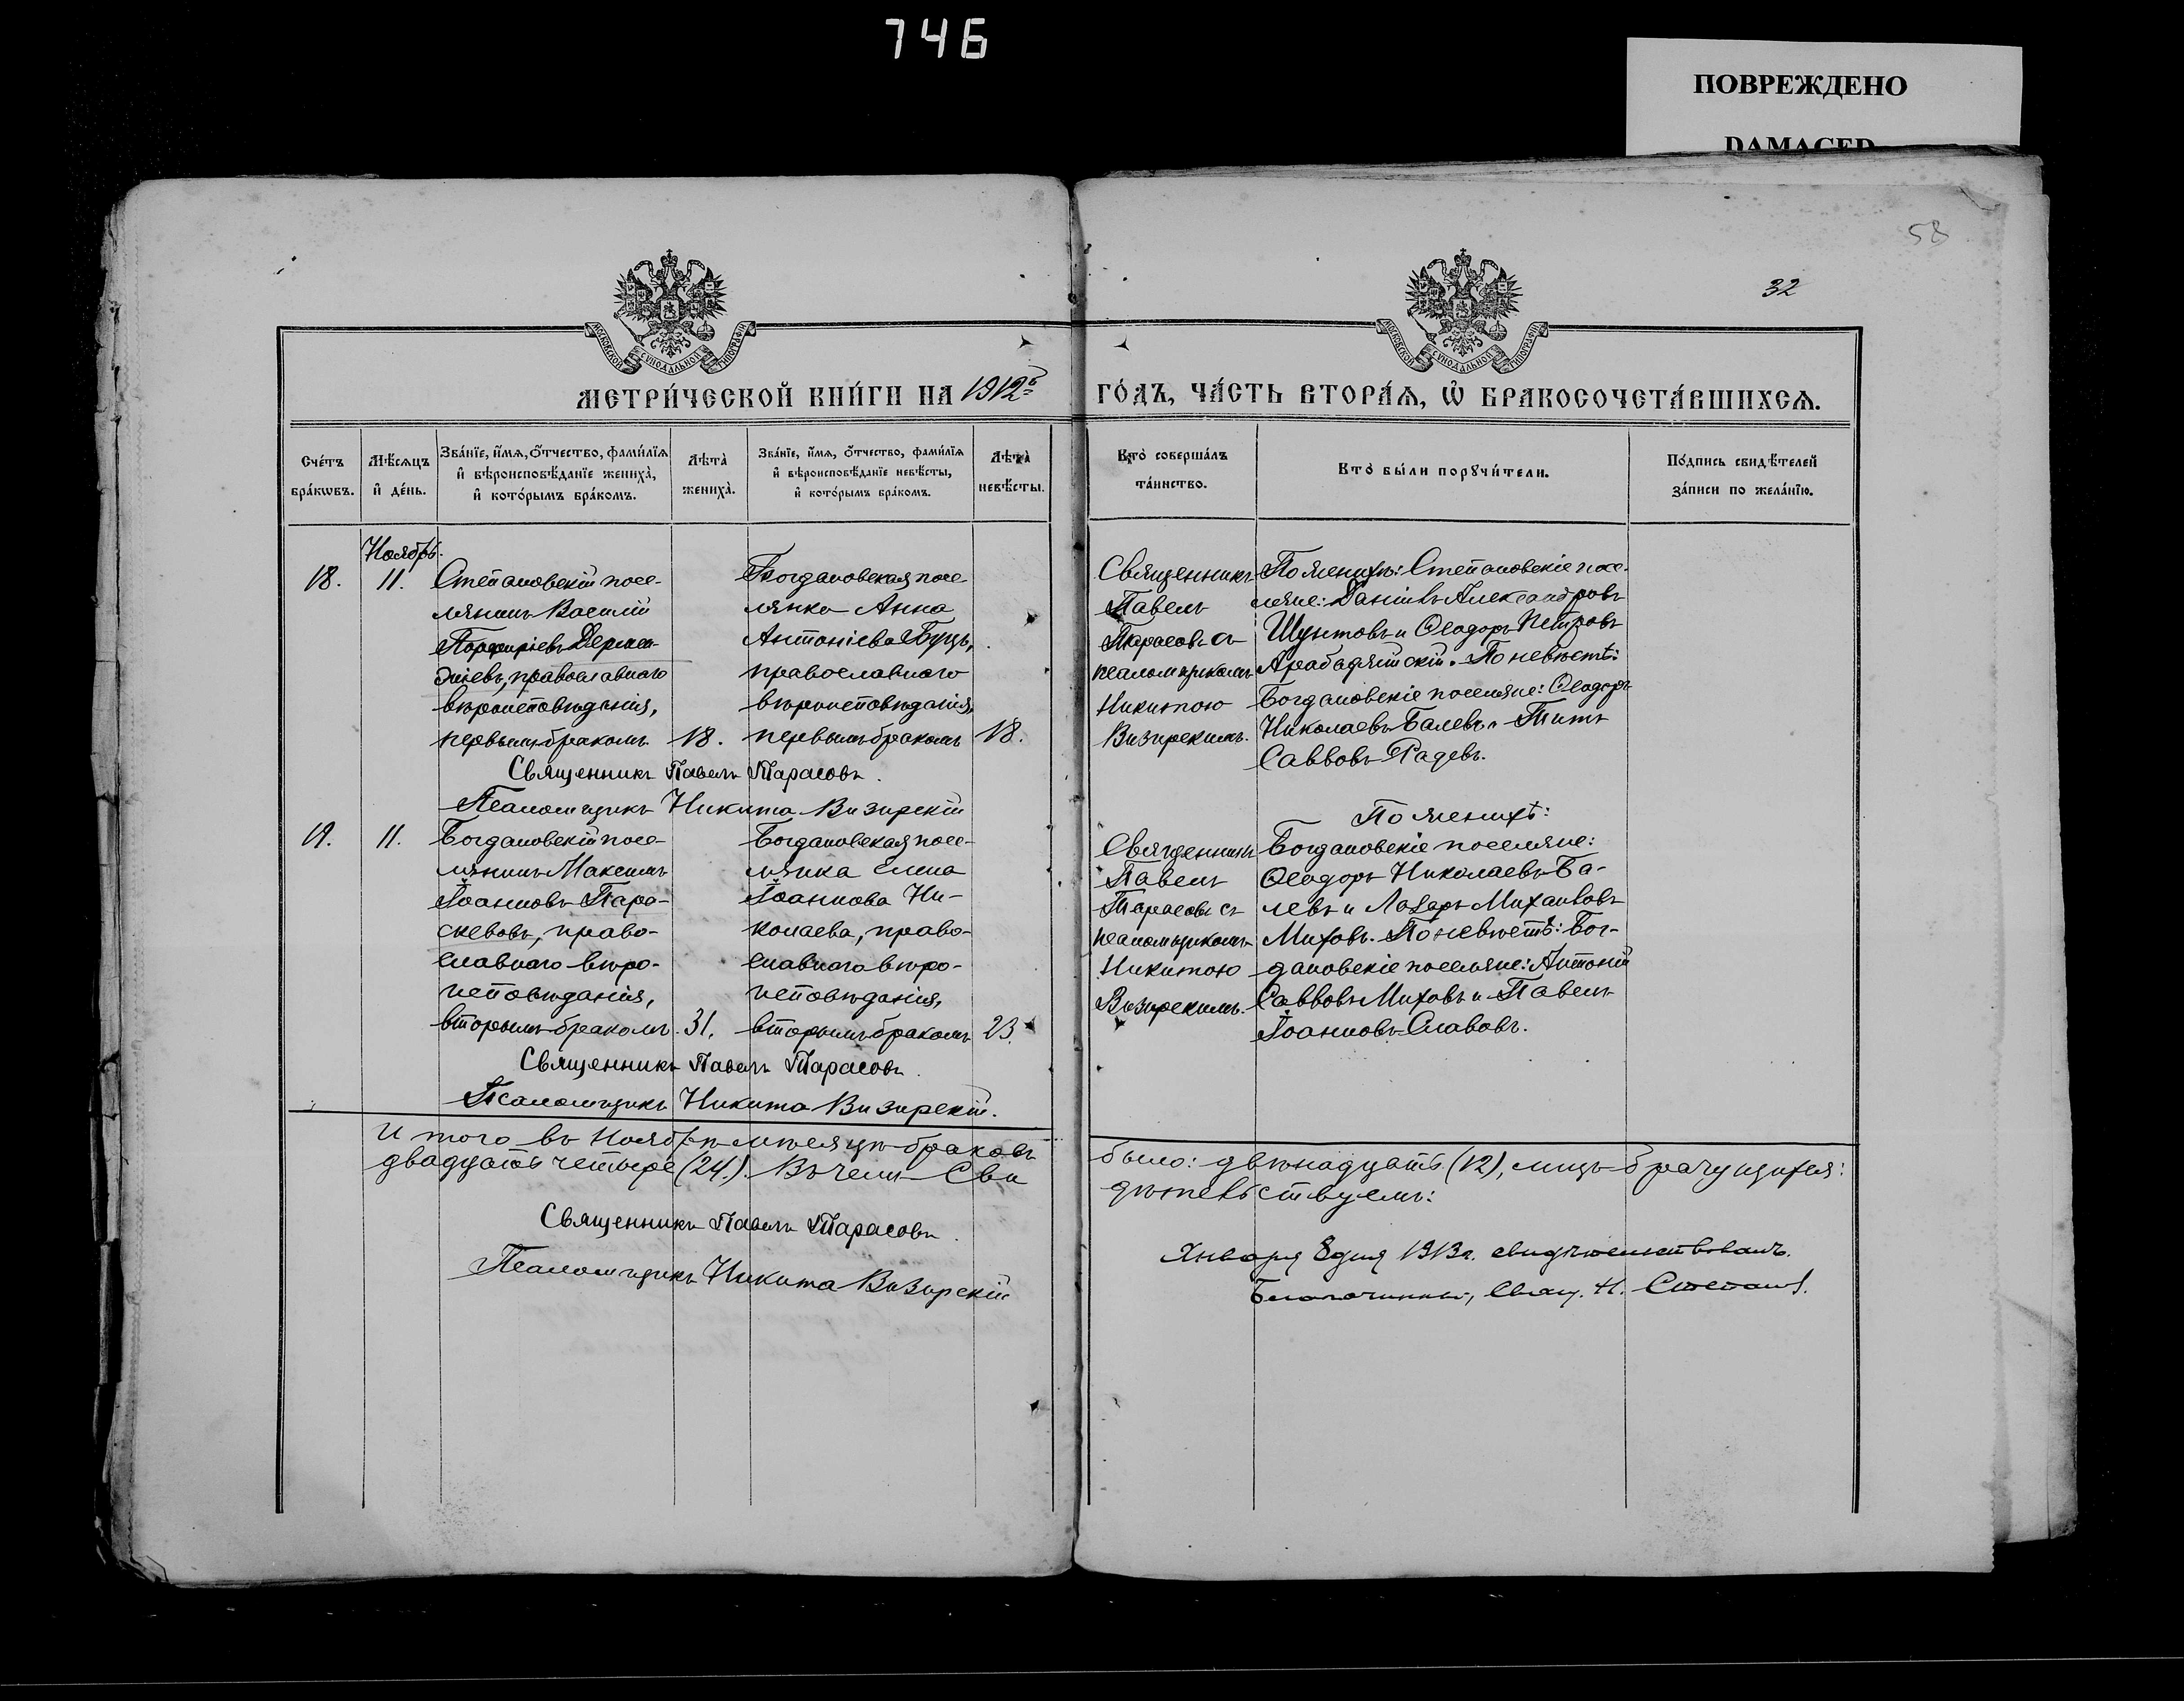 746
ПОВРЕЖДЕНО
DAMAGED
58
32
МОСКОВСКОЙ СѴНОДАЛЬНОЙ ТИПОГРАФІИ
МОСКОВСКОЙ СѴНОДАЛЬНОЙ ТИПОГРАФІИ
МЕТРИ́ЧЕСКОЙ КНИ́ГИ НА 1912й ГО́ДЪ, ЧА́СТЬ ВТОРА́Я, Ѡ҆ БРАКОСОЧЕТА́ВШИХСЯ.
Сче́тъ бра́кѡвъ.
Мѣ́сяцъ и҆ де́нь.
Зва́нїе, и҆́мя, ѻ҆́тчество, фами́лїя и҆ вѣроисповѣ́данїе жениха̀, и҆ кото́рымъ бра́комъ.
Лѣта̀ жениха̀.
Зва́нїе, и҆́мя, ѻ҆́тчество, фами́лїя и҆ вѣроисповѣ́данїе невѣ́сты, и҆ кото́рымъ бра́комъ.
Лѣта̀ невѣ́сты.
Кто̀ соверша́лъ та́инство.
Кто̀ бы́ли порꙋчи́тели.
По́дпись свидѣ́телей за́писи по жела́нїю.
Ноябрь.
18.
11.
Степановскій посе-
лянинъ Василій
Порфиріевъ Дермен-
жіевъ, православнаго
вѣроисповѣданія,
первымъ бракомъ
18.
Богдановская посе-
лянка Анна
Антоніева Буцъ,
православнаго
вѣроисповѣданія,
первымъ бракомъ
18.
Священникъ
Павелъ
Тарасовъ съ
псаломщикомъ
Никитою
Визирскимъ.
По женихѣ: Степановскіе посе-
ляне: Даніилъ Александровъ
Шунтовъ и Ѳеодоръ Петровъ
Арабаджійскій. По невѣстѣ:
Богдановскіе поселяне: Ѳеодоръ
Николаевъ Балевъ и Титъ
Саввовъ Радевъ.
Священникъ Павелъ Тарасовъ.
Псаломщикъ Никита Визирскій
19.
11.
Богдановскій посе-
лянинъ Максимъ
Іоанновъ Пара-
скевовъ, право-
славнаго вѣро-
исповѣданія,
вторымъ бракомъ
31.
Богдановская посе-
лянка Елена
Іоаннова Ни-
колаева, право-
славнаго вѣро-
исповѣданія,
вторымъ бракомъ
23.
Священникъ
Павелъ
Тарасовъ съ
псаломщикомъ
Никитою
Визирскимъ.
По женихѣ:
Богдановскіе поселяне:
Ѳеодоръ Николаевъ Ба-
левъ и Лазарь Михаиловъ
Миховъ. По невѣстѣ: Бог-
дановскіе поселяне: Антоній
Саввовъ Миховъ и Павелъ
Іоанновъ Славовъ.
Священникъ Павелъ Тарасовъ.
Псаломщикъ Никита Визирскій.
Итого въ Ноябрѣ мѣсяцѣ браковъ было: двѣнадцать (12), лицъ брачущихся:
двадцать четыре (24). Въ чемъ Свидѣтельствуемъ:
Священникъ Павелъ Тарасовъ.
Псаломщикъ Никита Визирскій
Января 8 дня 1913 г. свидѣтельствовалъ.
Благочинный, Свящ. Н. Степанов